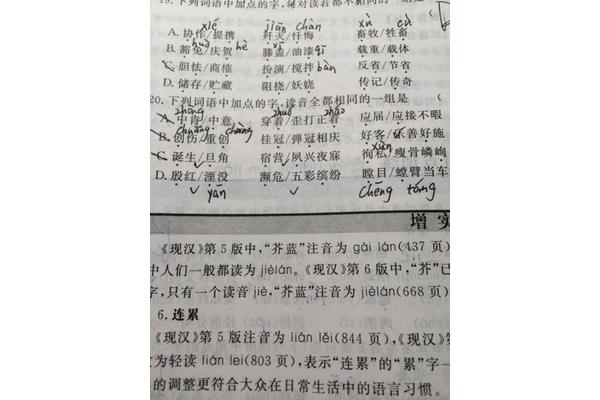 19.下列词语中加点的字,每对读音都不相同的一组是
xié jiān chàn xù cù
A.协作/提携 歼灭/忏悔 畜牧/牲畜
huò hè xī qī
B.豁免/庆贺 膝盖/油漆 载重/载体
bàn
C.胆怯/商榷 扮演/搅拌 反省/节省
D.储存/贮藏 阻挠/妖娆 传记/传奇
20.下列词语中加点的字,读音全都相同的一组是 (
zhòng zhuó zháo
A.中肯/中意 穿着/歪打正着 应届/应接不暇
chuāng chuàng
B.创伤/重创 桂冠/弹冠相庆 好客/乐善好施
xùn
C.诞生/旦角 宿营/夙兴夜寐 徇私/瘦骨嶙峋
D.殷红/湮没 濒危/五彩缤纷 瞠目/螳臂当车
yān chēng táng
增 实
《现汉》第 5 版中,“芥蓝”注音为 gài lán(437 页)
中人们一般都读为 jièlán。《现汉》第 6 版中,“芥”已
字,只有一个读音 jiè,“芥蓝”注音为 jièlán(668 页)
6.连累
《现汉》第 5 版注音为 lián lěi(844 页),《现汉》第
改为轻读 lián lei(803 页),表示“连累”的“累”字一
的调整更符合大众在日常生活中的语言习惯。